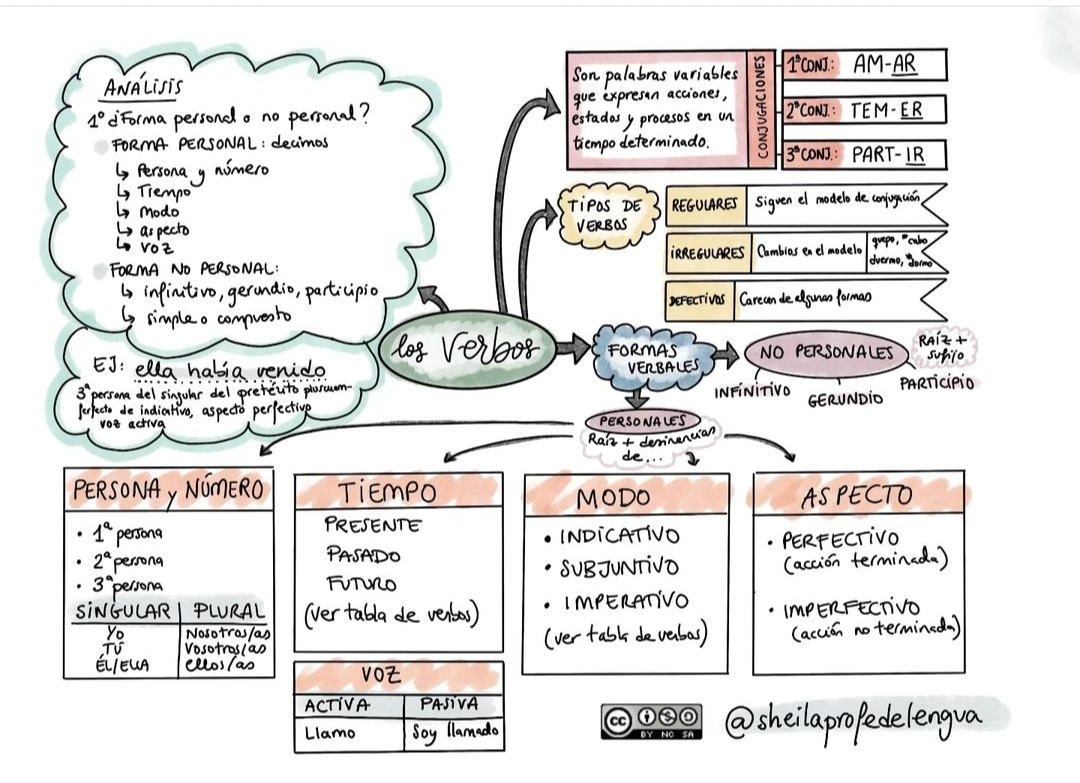 ANÁLISIS
1º ¿Forma personal o no personal?
FORMA PERSONAL: decimos
↳ Persona y número
↳ Tiempo
↳ Modo
↳ aspecto
↳ voz
FORMA NO PERSONAL:
↳ infinitivo, gerundio, participio
↳ simple o compuesto
EJ: ella había venido
3ª persona del singular del pretérito pluscuam-
perfecto de indicativo, aspecto perfectivo
voz activa
los verbos
Son palabras variables
que expresan acciones,
estados y procesos en un
tiempo determinado.
CONJUGACIONES
1ªCONJ.: AM-AR
2ªCONJ.: TEM-ER
3ªCONJ.: PART-IR
TIPOS DE
VERBOS
REGULARES Siguen el modelo de conjugación
IRREGULARES Cambios en el modelo quepo, *cabo
duermo, *dormo
DEFECTIVOS Carecen de algunas formas
FORMAS
VERBALES
NO PERSONALES
RAÍZ +
sufijo
INFINITIVO
GERUNDIO
PARTICIPIO
PERSONALES
Raíz + desinencias
de...
PERSONA y NÚMERO
• 1ª persona
• 2ª persona
• 3ª persona
SINGULAR PLURAL
Yo Nosotros/as
TÚ Vosotros/as
ÉL/ELLA ellos/as
TIEMPO
PRESENTE
PASADO
FUTURO
(ver tabla de verbos)
VOZ
ACTIVA PASIVA
Llamo Soy llamado
MODO
• INDICATIVO
• SUBJUNTIVO
• IMPERATIVO
(ver tabla de verbos)
ASPECTO
• PERFECTIVO
(acción terminada)
• IMPERFECTIVO
(acción no terminada)
cc
BY NC SA
@sheilaprofedelengua